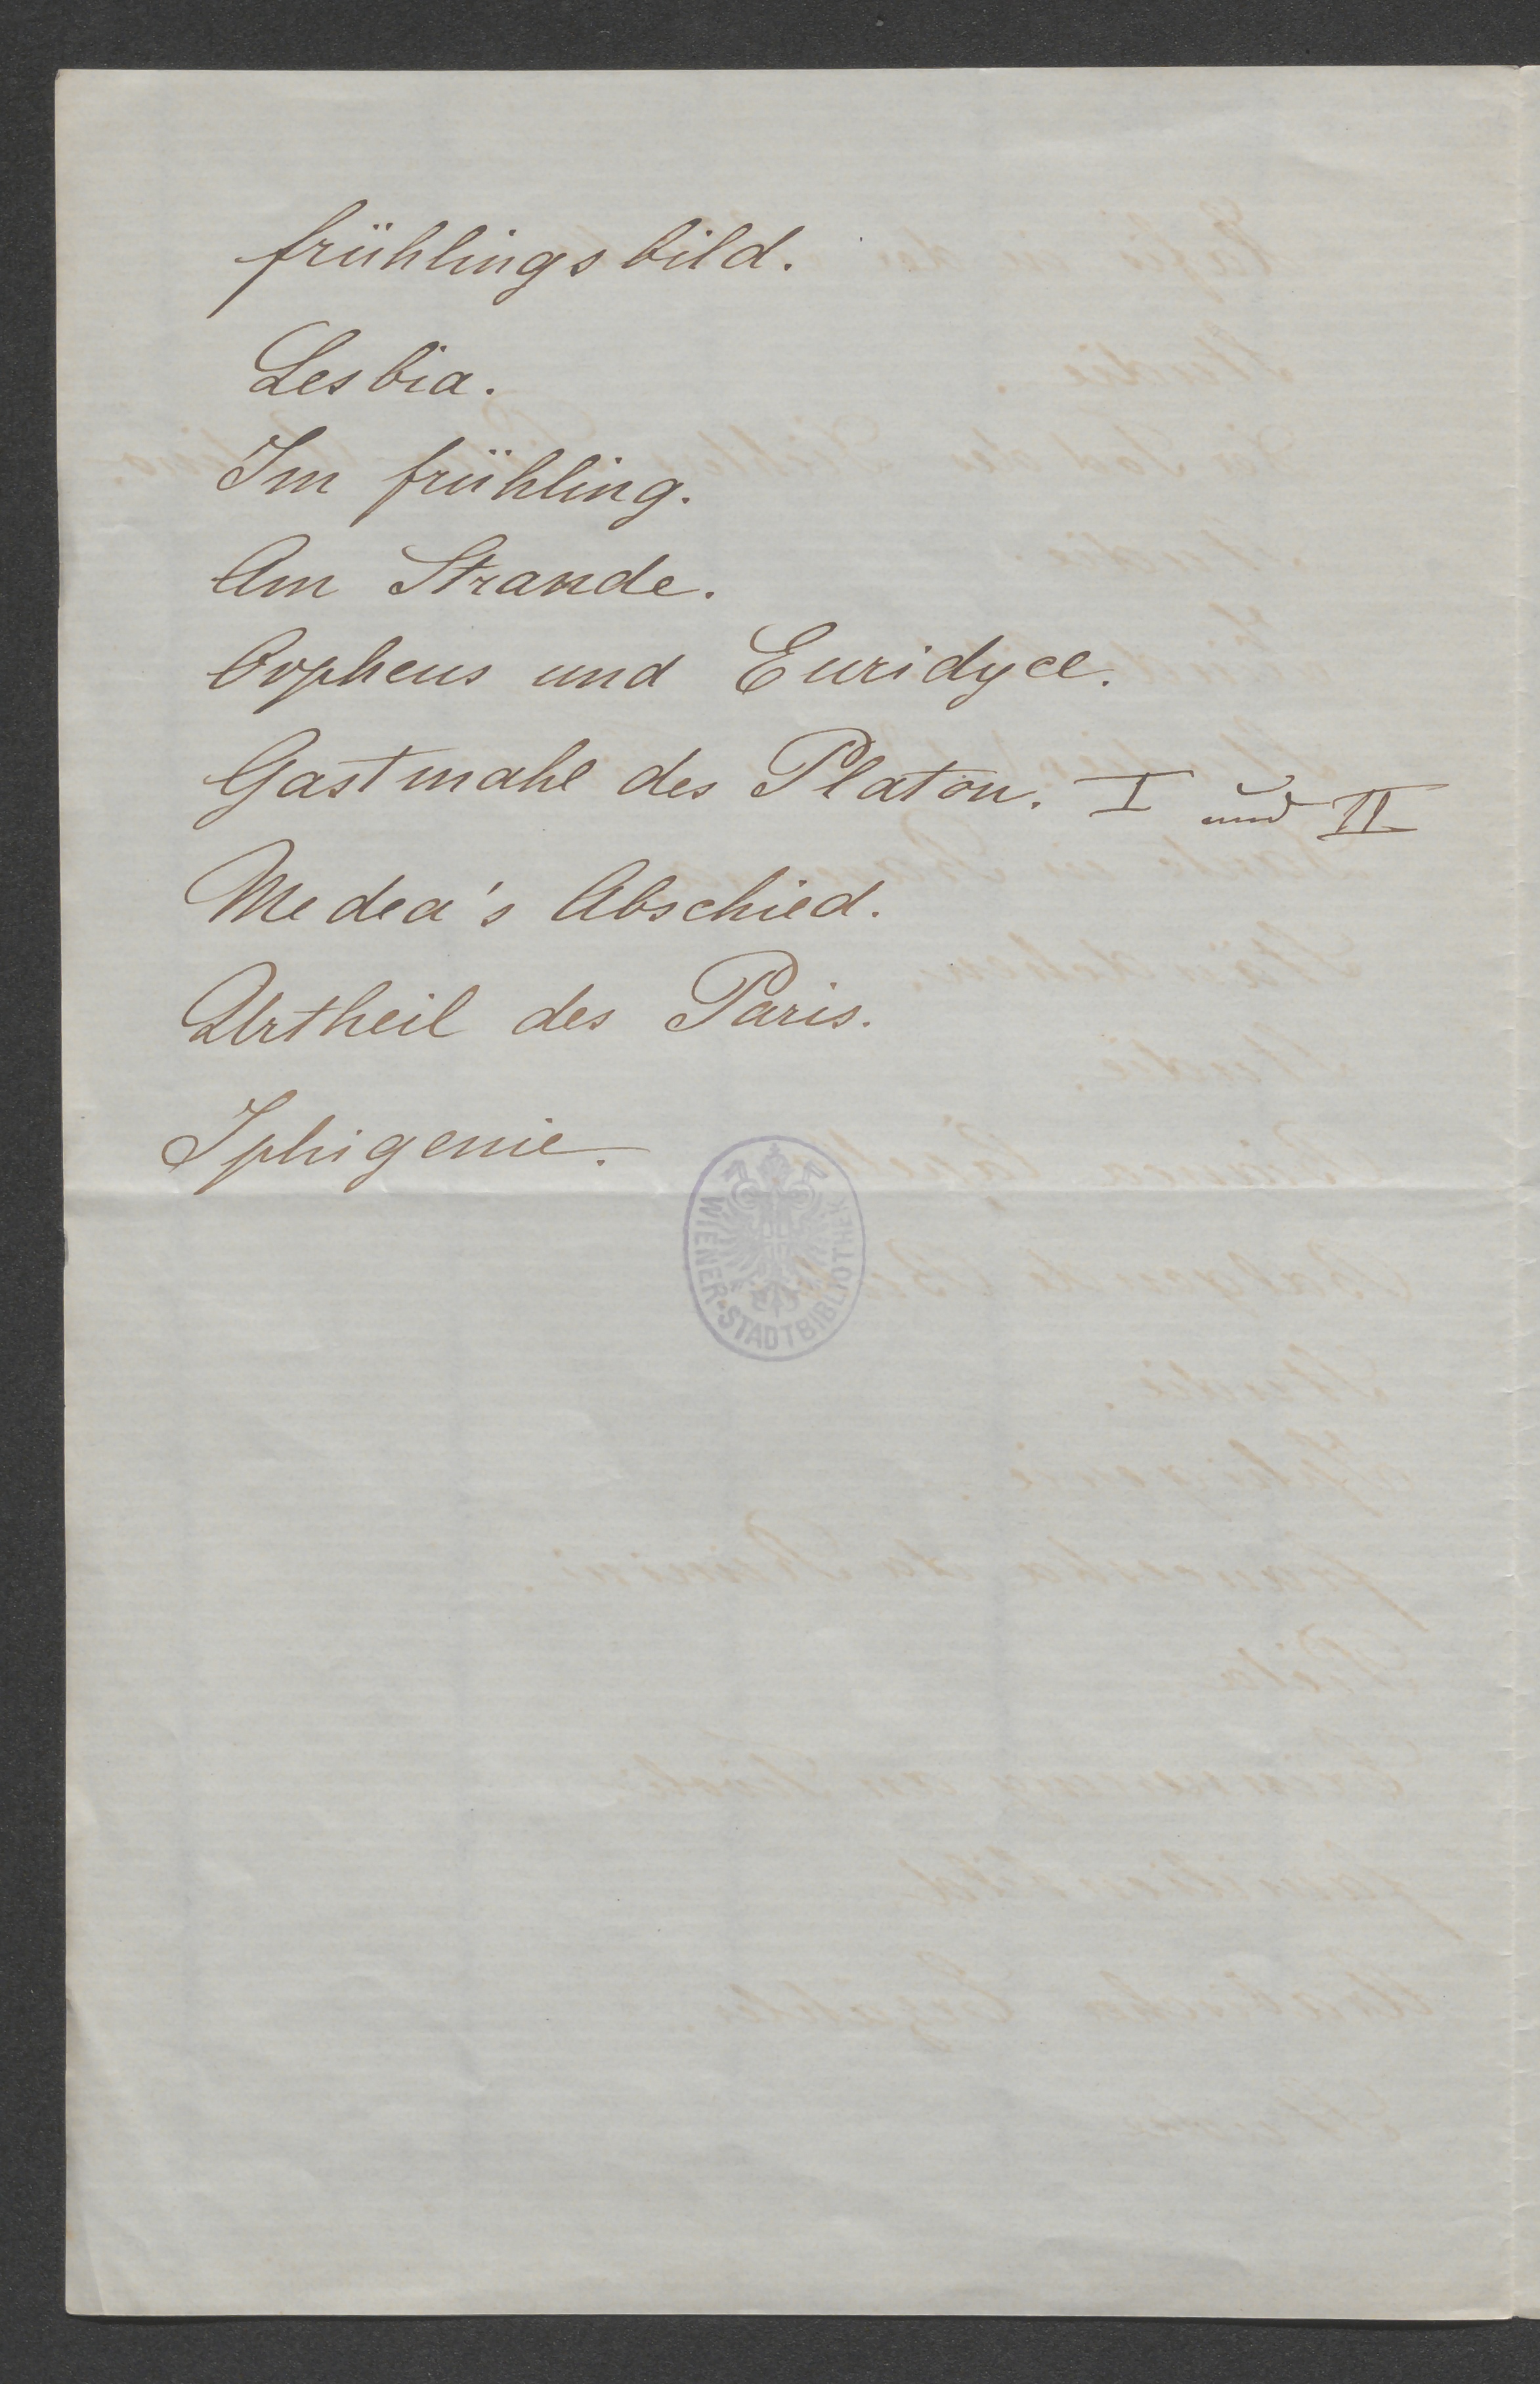 frühlingsbild.
Lesbia.
Im frühling.
Am Strande.
Orpheus und Euridyce.
Gastmahl des Platon. I und II
Medea's Abschied.
Urtheil des Paris.
Iphigenie.
WIENER-STADTBIBLIOTHEK